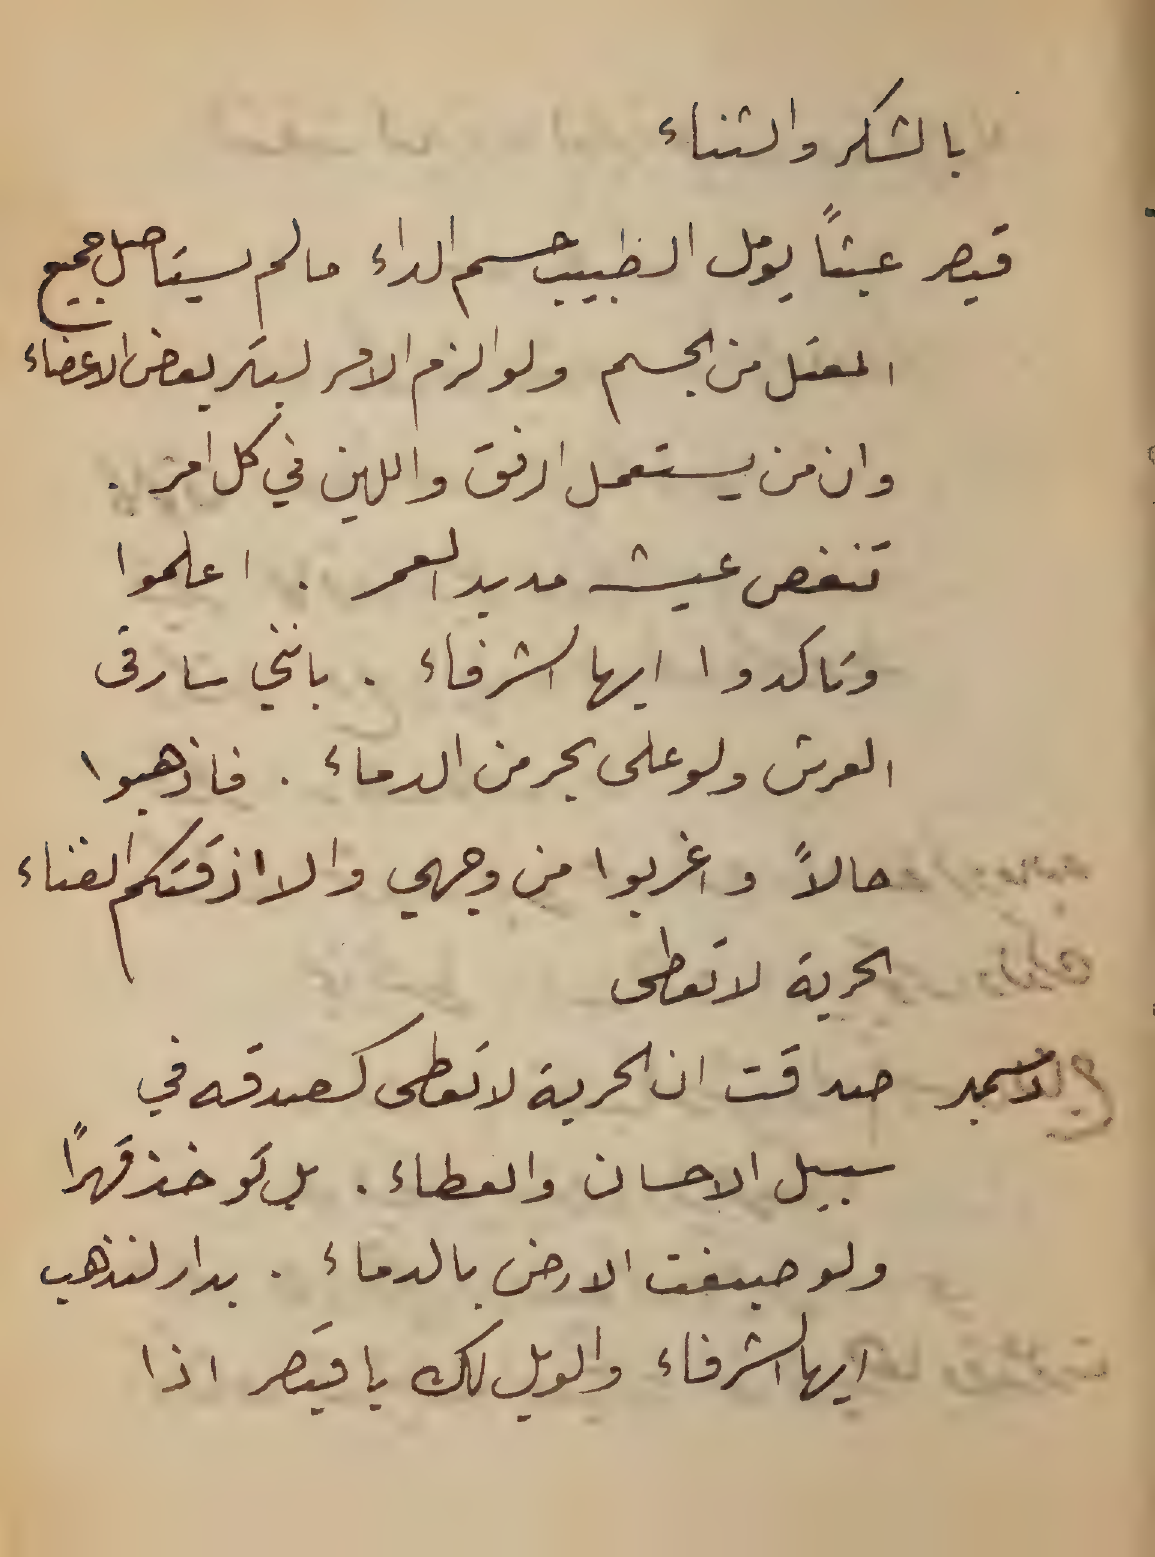 بالشكر والثناء
قيصر عبثاً يومل الطبيب حسم الداء مالم يستاصل جميع
المعتل من الجسم ولو الزم الامر لبتر بعض الاعضاء
وان من يستعمل الرفق واللين في كل امر .
تنغص عيشه مديد العمر . اعلموا
وتاكدوا ايها الشرفاء . بانني سارقى
العرش ولو على بحر من الدماء . فاذهبوا
حالاً واغربوا من وجهي والا اذقتكم الفناء
الحرية لا تعطى
صدقت ان الحرية لا تعطى كصدقه في
سبيل الاحسان والعطاء . بل توخذ قهراً
ولو صبغت الارض بالدماء . بدار لنذهب
ايها الشرفاء والويل لك يا قيصر اذا